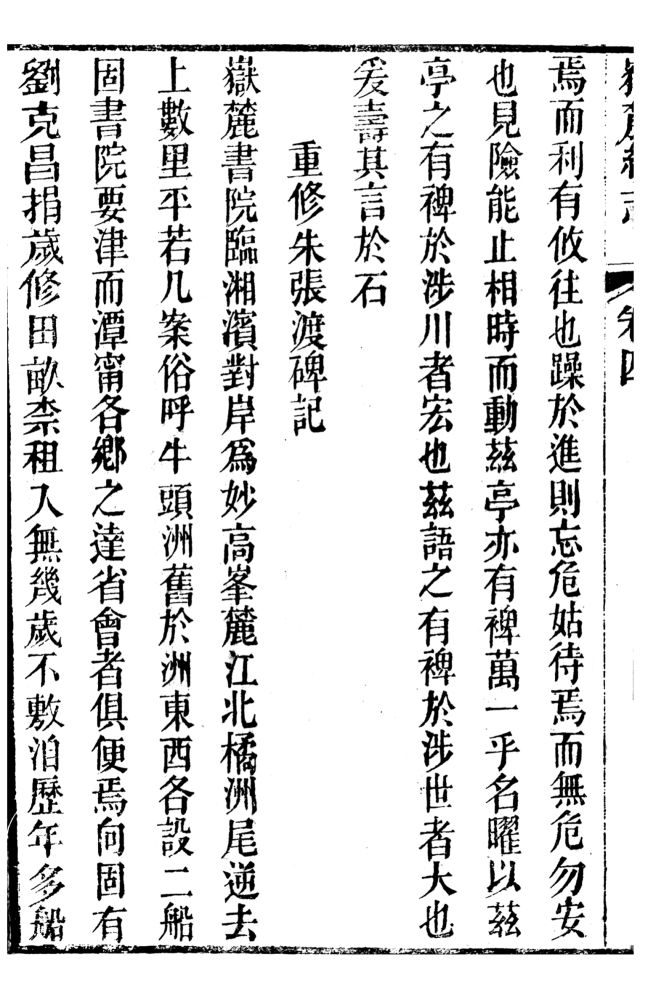 卷四
焉而利有攸往也躁於進則忘危姑待焉而無危勿安
也見險能止相時而動茲亭亦有裨萬一乎名曜以茲
亭之有裨於涉川者宏也茲語之有裨於涉世者大也
爰壽其言於石
重修朱張渡碑記
嶽麓書院臨湘濱對岸爲妙高峯麓江北橘洲尾逆去
上數里平若几案俗呼牛頭洲舊於洲東西各設二船
固書院要津而潭甯各鄉之達省會者俱便焉向固有
劉克昌捐歲修田畝柰租入無幾歲不敷洎歷年多船